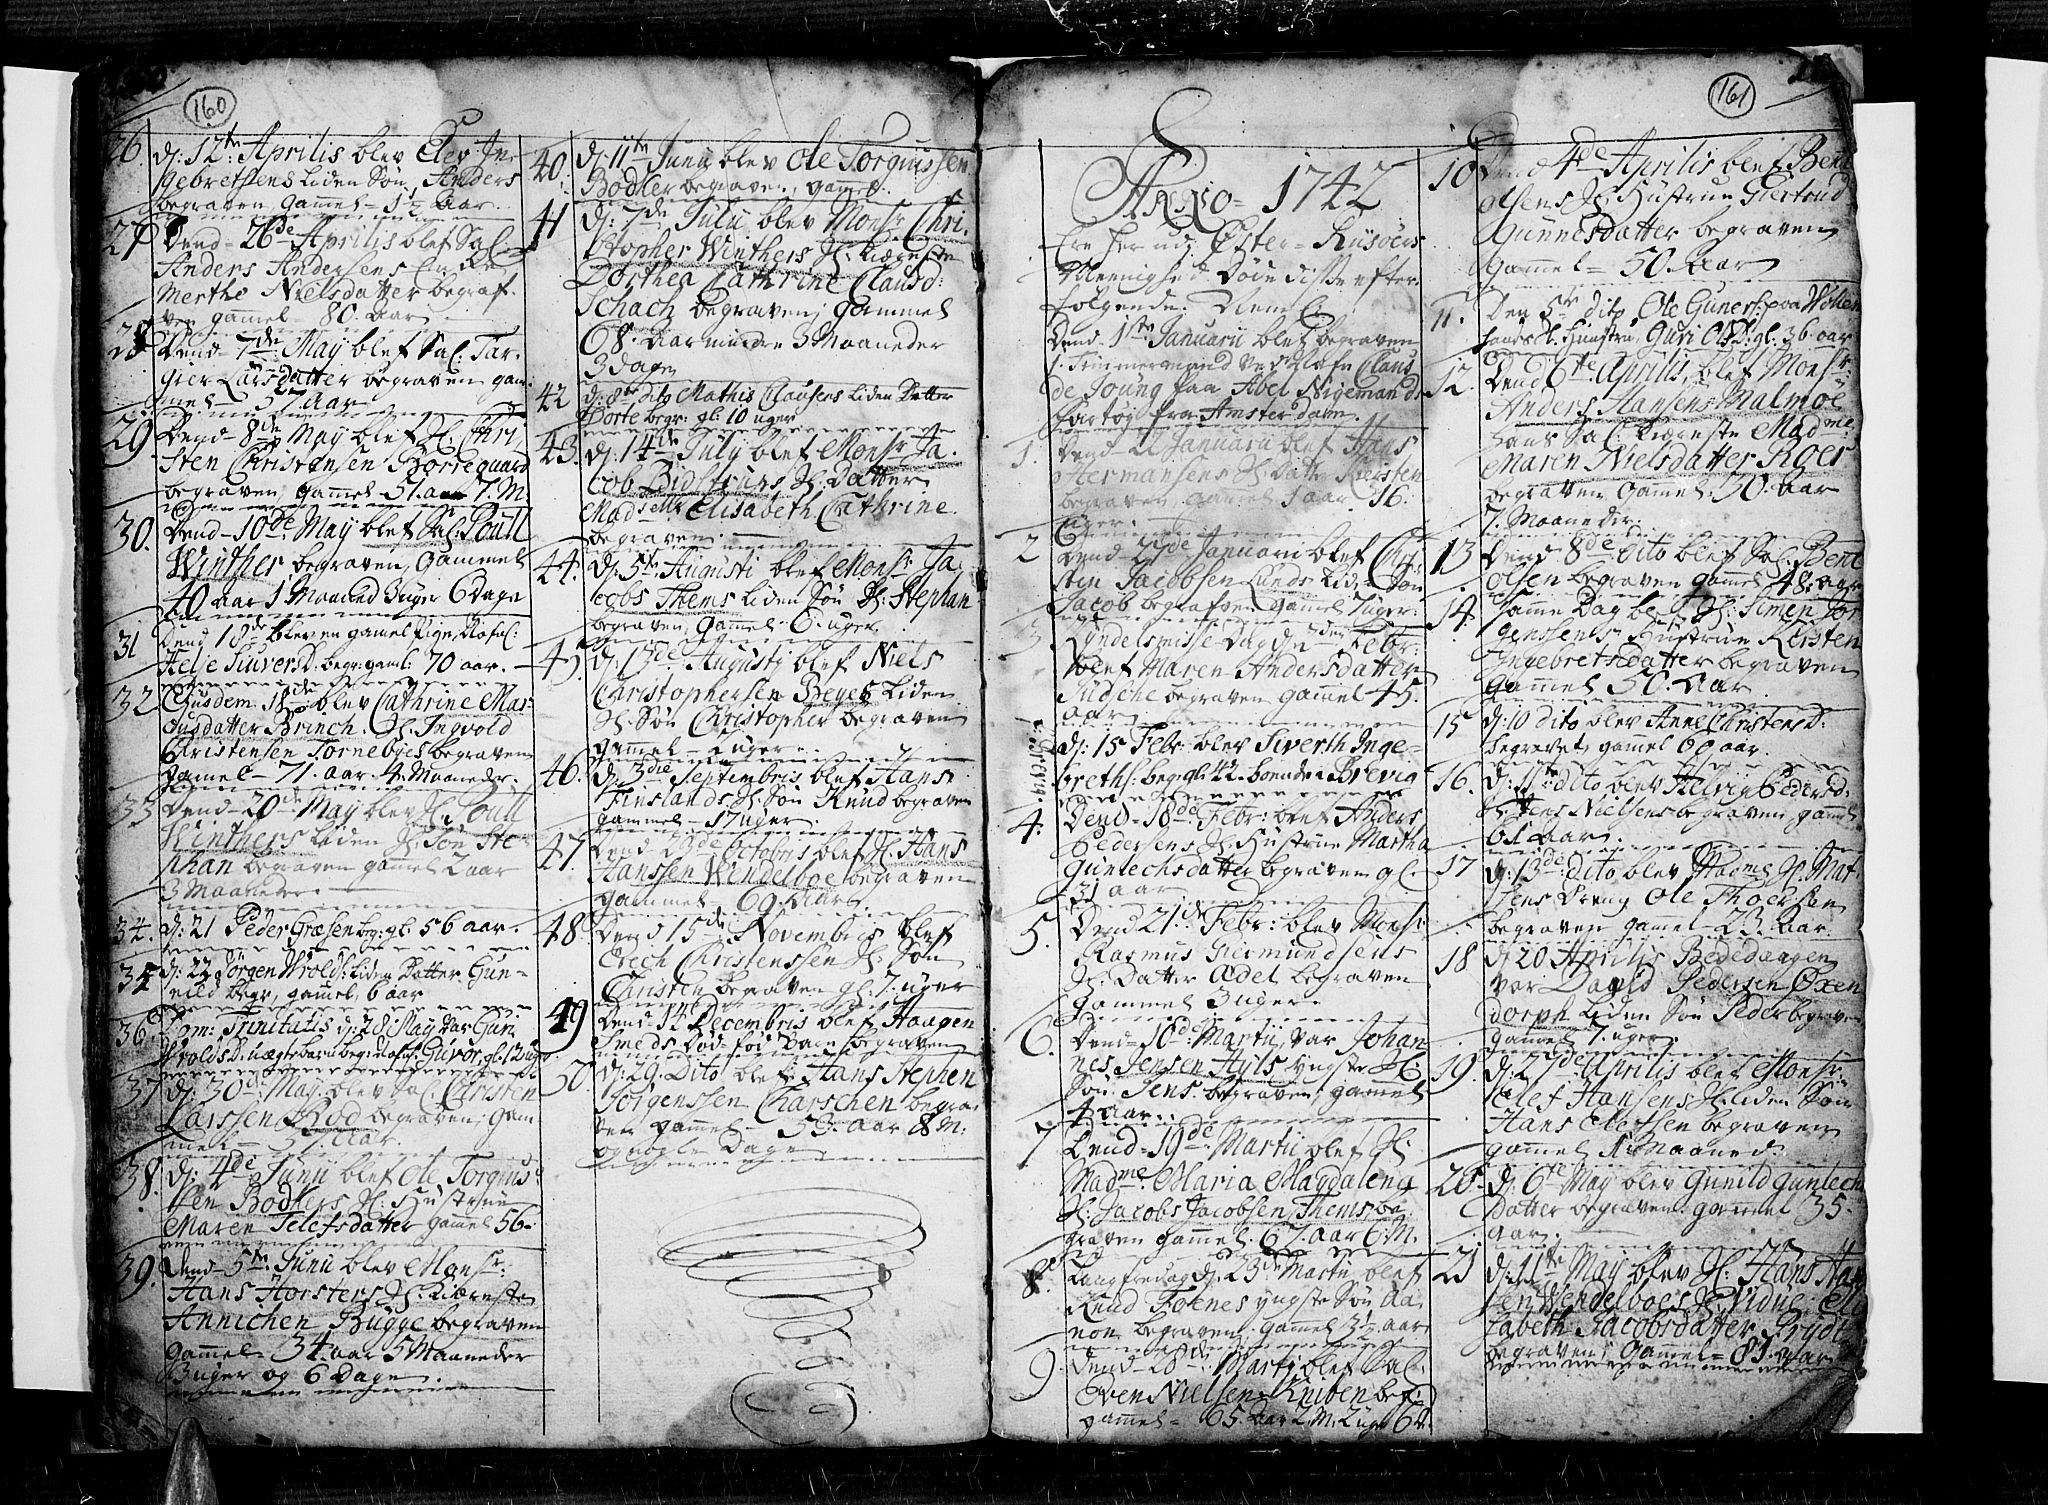 160
26. d: 12te Aprilis blev Elev In
gebretsens liden Søn Anders
begraven, gammel 1½ aar.
27 Dend 26de Aprilis blef Sal:
Anders Andersens
Merthe Nielsdatter begraf
ven gammel 80. aar
28 Dend 7de May blef Sal: Tar
gier Larsdatter begraven gam
mel 57 aar
29. Dend 8de May blef H: Chri
sten Christensen Borregaard
begraven, gammel 51. aar 7. M.
30. Dend 10de May blef Sal: Poull
Winther begraven, gammel
40 aar 1 Maaned 3 uger 6 Dage
31 Dend 18de blev en gamel Pige,
Aelje Siuversd. begr: gaml: 70 aar.
32 Ejusdem 18de blev Cathrine Mar
cusdatter Brinch. H: Ingvold
Christensen Torneboes begraven
gamel 71. aar. 4. Maaneder.
33 Dend 20de May blev H: Poull
Winthers liden H: Søn Ste
phan begraven gammel 2 aar
3 Maaneder
34. d: 21 Peder Græsen beg: gl: 56 aar.
35 d: 22 Jørgen Wrolds: liden Datter Gun
nild begr, gammel, 6 aar
36 Dom: Trinitatis d: 28 May var Guri
Wrolds D: uægte barn begr: Guvor, gl: 12 uger
37 d: 30de May blev Sal: Christen
Larssen Rød begraven, gam
mel 57. aar.
38. d: 4de Junii blef Ole Torgius
sen Bodlers H: Hustrue
Maren Telefsdatter gamel 56
39. Dend 5te Junii blev Monsr:
Hans Horsters H: Kiæreste
Annichen Bugge begraven
gammel 34. aar 5 Maaneder
3 uger og 6 Dage.
40. d: 11te Junii blev Ole Torgiussen
Bodler begraven, gamel.
41 d: 7de Julii blev Monsr Chri
stopher Winthers H: Kiæreste
Dorthea Cathrine Clausd:
Schach begraven, gammel
68. aar mindre 3 Maaneder
3 dage
42 d: 8de dito Mathis Clausens liden Datter
Dorte begr: gl: 10 uger
43. d: 14de July blef Monsr Ja
cob Bidstrups H: Datter
Madselle Elisabeth Cathrine
begraven.
44. d: 5te Augusti blef Monsr Ja
cobs Thems liden Søn H: Stephan
begraven, gammel 6. uger.
45. d: 13de Augusti blef Niels
Christophersen Beyes liden
H: Søn Christopher begraven
gamel 2 uger.
46. d: 3die Septembris blef Hans
Finslands H: Søn Knud begraven
gammel 17 uger.
47. Dend 29de Octobris blef H: Hans
Hanssen Wendelboe begraven
gammel 69. Aar.
48. Dend 15de Novembris blef
Erech Christenssen H: Søn
Christen begraven gl: 7. uger
49 Dend 14 Decembris blef Haagen
Smeds død fød Barn begraven
50 d: 29. Dito blef Hans Stephen
Jørgenssen Charschen begra
ven gammel 55. aar 8 M:
og nogle Dage
161
Anno 1742
Ere her udj Øster Riisøers
Meenighed døde disse efter
følgende. Neml:
Dend 1ste Januarii blef begraven
1. Timmermand ved Nafn Claus
de Joung paa Abel Nigemands
fartøy fra Amsterdam.
1. Dend 12 Januarii blef Hans
Hermansens H: Datt: Kiersten
begraven gammel 1 aar 16.
uger.
2 Dend 29de Januarii blef Chri
sten Jacobsen Lunds lid: Søn
Jacob begrafven gammel 7 uger.
3. Kyndelsmisse Dag den 2den Febr:
blef Maren Andersdatter
Judche begraven gammel 45.
aar
d: 15 Febr: blev Siverth Inge
breths: begr: gl: 42. boende i Brevig
4. Dend 18de Febr: blef Anders
Pedersens H: Hustrue Martha
Guntechsdatter begraven gl:
31 aar
5. Dend 21de Febr: blev Monsr:
Rasmus Giermundsens
H: Datter Ædel begraven
gammel 3 uger.
6. Dend 10de Martii, var Johan
nes Jensen Hyls yngste H:
Søn Jens begraven, gammel
4 aar.
7 Dend 19de Martii blef H:
Madme: Maria Magdalena
H: Jacobs Jacobsen Thems be
graven gammel. 67. aar 6 M.
8. Langfredag d: 23de Martii blef
Knud Folnes yngste Søn Aa
non begraven gammel 3½ aar
9. Dend 28de Martj blef Sal:
Even Nielsen Kniben begr
gammel 65. aar 2. M: 2 uger 6 d.
10 Dend 4de Aprilis blef Bent
Olsens H: Hustrue Giertrud
Gunnesdatter begraven
gammel 50. Aar
11. Den 5te dito Ole Guners: paa
hands H: Hustru, Guri OlsD: gl: 36 aar
12. Dend 6te Aprilis, blef Monsr:
Anders Hansens Malmøe
hans Sal: Kiæreste Madme:
Maren Nielsdatter Roer
begraven, gamel 70. aar
7. Maaneder.
13 Dend 8de dito blef Sal: Bent
Olsen begraven gammel 48. aar
14. Samme Dag be: H: Simen Jør
genssens Hustrue Kirsten
Ingebretsdatter begraven
gammel 50. Aar
15 d: 10 dito blev Anne ChristensD:
begravet, gammel 60 aar.
16. d: 11te dito blev Helvig Pedersd:
Niels Nielsens begraven gammel
61 Aar.
17 d: 13de dito blev Madme H: Mat
hiens Dreng Ole Thoersen
begraven gammel 23. Aar.
18 d: 20 Aprilis Bededagen
var David Pedersen Oxen
dorph liden Søn Peder begraven
gammel 7. uger
19. d: 27de Aprilis blev Monsr:
Elef Hansens H: liden Søn
Hans Elefsen begraven
gammel 1 Maaned.
20. d: 6te May blev Gunild Guntech
Datter begraven, gammel 35.
aar.
21 d: 11te May blev H: Hans Han
sen Wendelboes H: Vidue Eli
zabeth Jacobsdatter Prydt
begraven, gammel 83. Aar